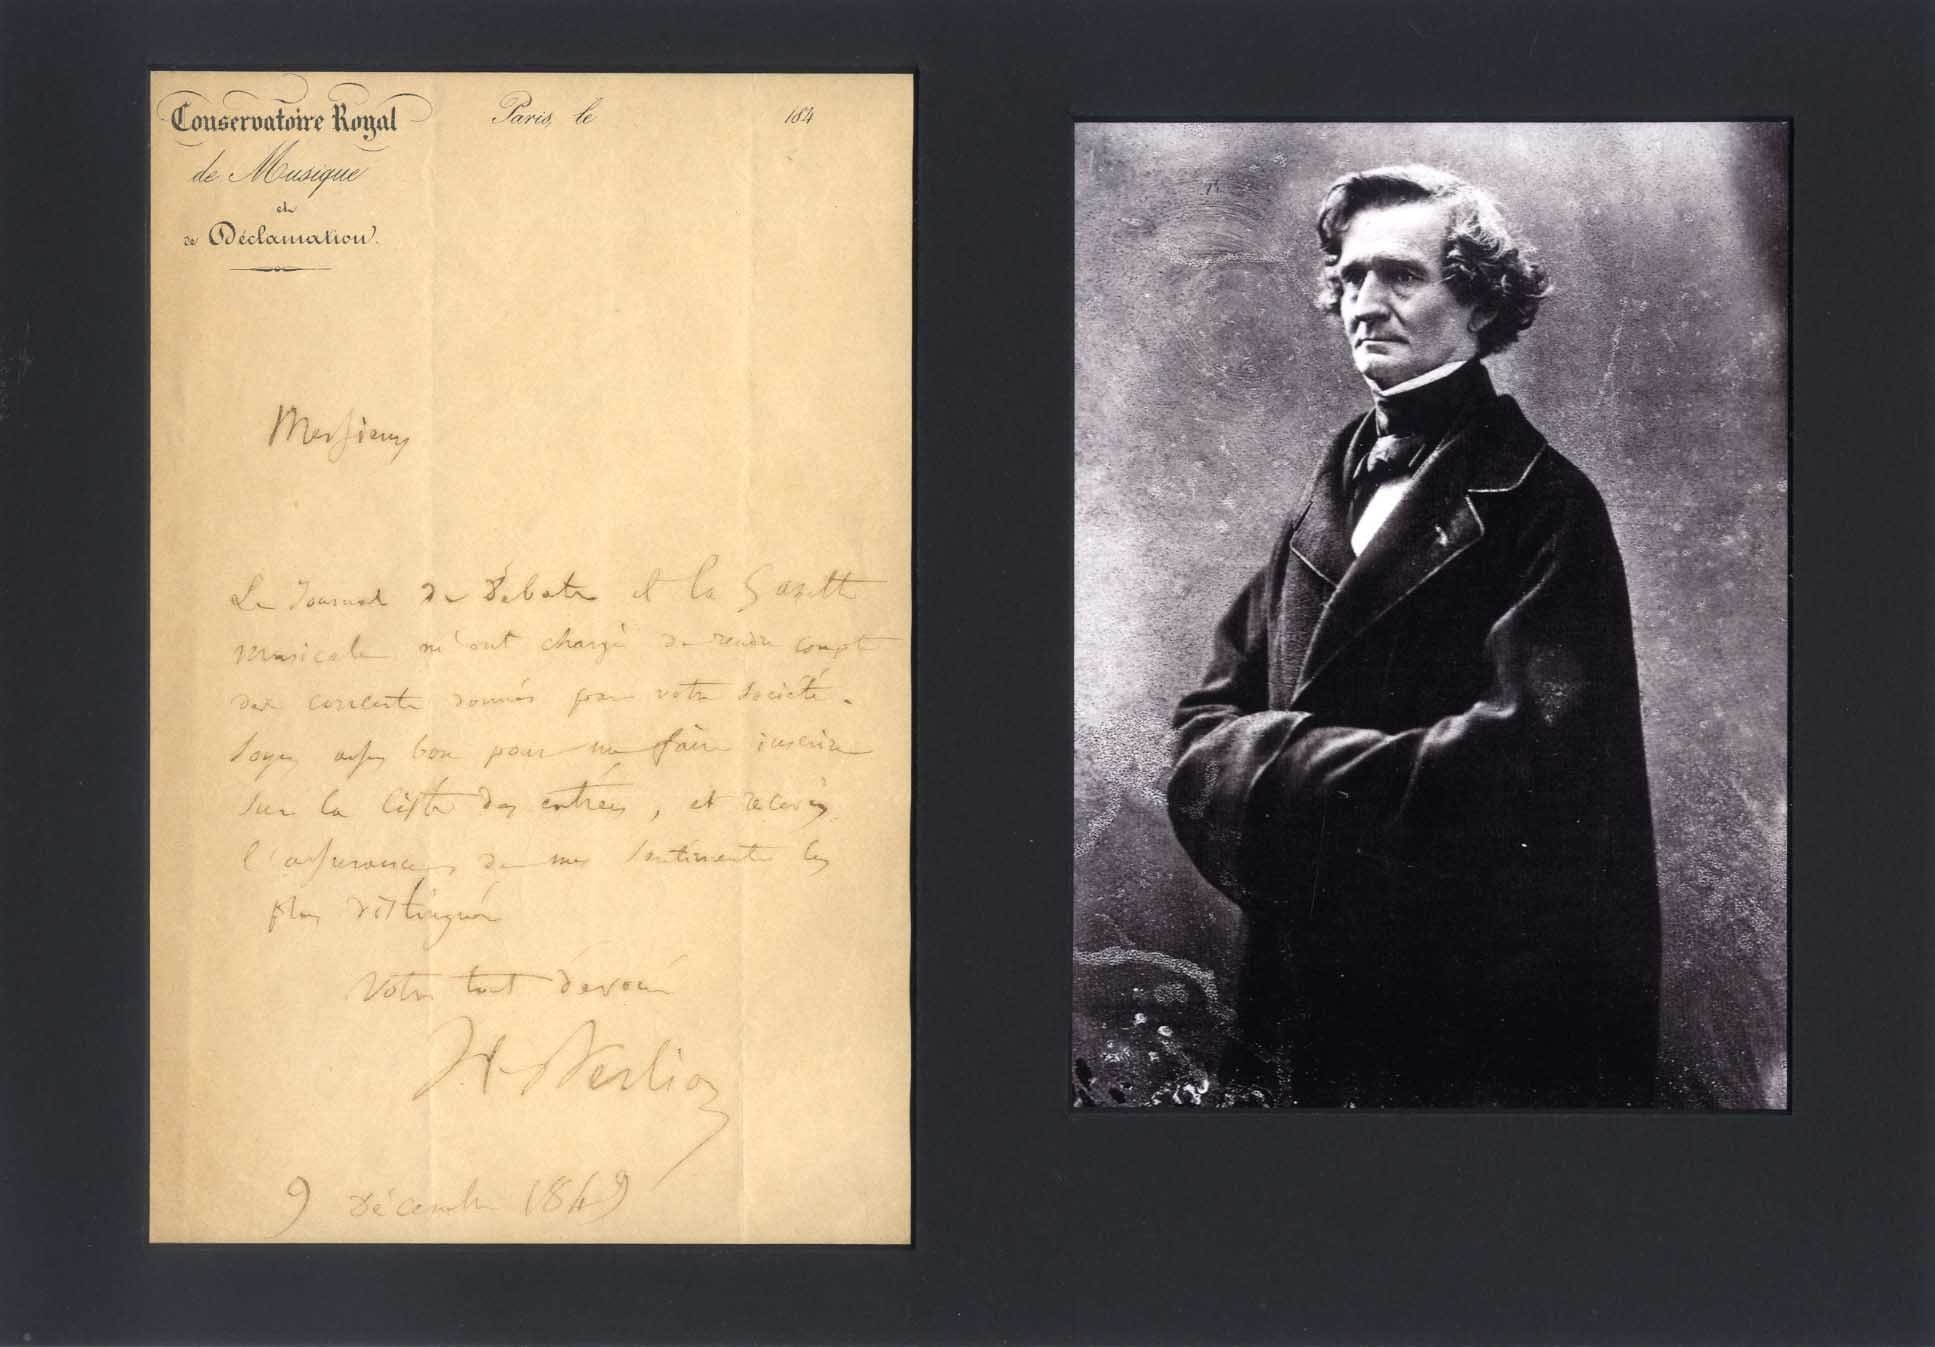 Conservatoire Royal
de Musique
et
de Déclamation.
Paris, le 184
Messieurs
Le Journal des Débats et la Gazette
musicale m'ont chargé de rendre compte
des concerts donnés par votre Société.
Soyez assez bon pour me faire inscrire
sur la liste des entrées, et recevez
l'assurance de mes sentiments les
plus distingués
Votre tout dévoué
H. Berlioz
9 Décembre 1849